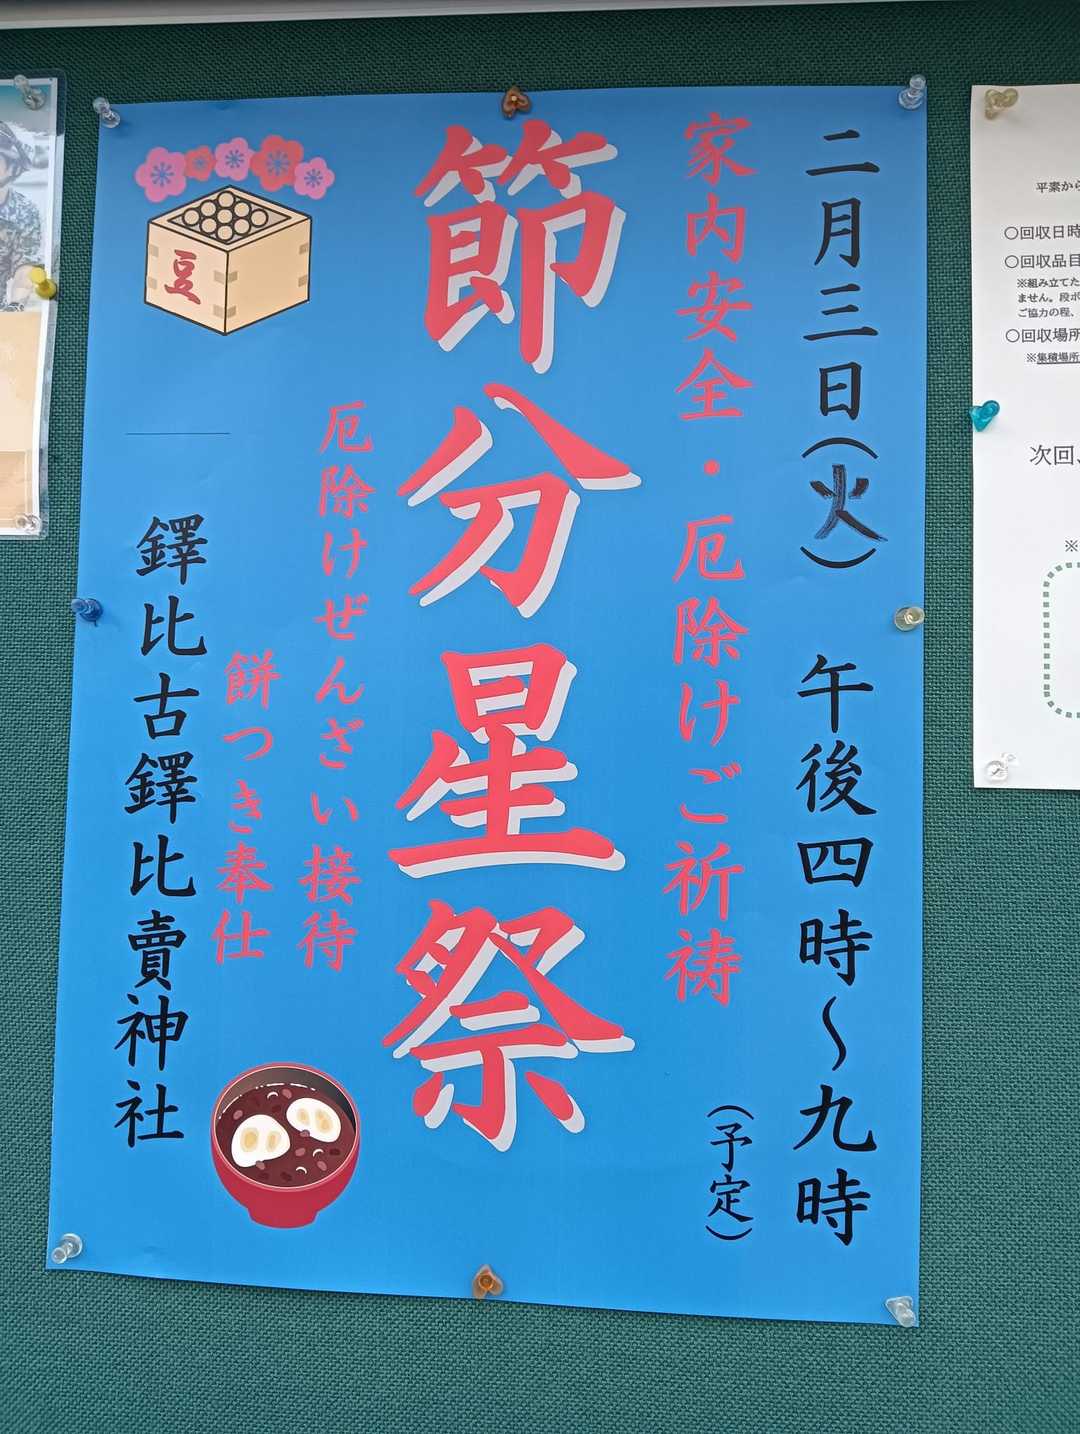 二月三日(火) 午後四時〜九時
(予定)
家内安全・厄除けご祈祷
節分星祭
厄除けぜんざい接待
餅つき奉仕
鐸比古鐸比賣神社
豆
平素から
〇回収日時
〇回収品目
※組み立てた
ません。段ボ
ご協力の程、
〇回収場所
※集積場所
次回、
※